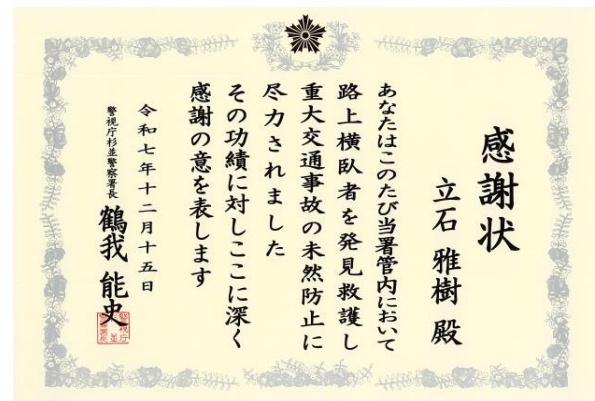 感謝状
立石 雅樹 殿
あなたはこのたび当署管内において
路上横臥者を発見救護し
重大交通事故の未然防止に
尽力されました
その功績に対しここに深く
感謝の意を表します
令和七年十二月十五日
警視庁杉並警察署長
鶴我 能史